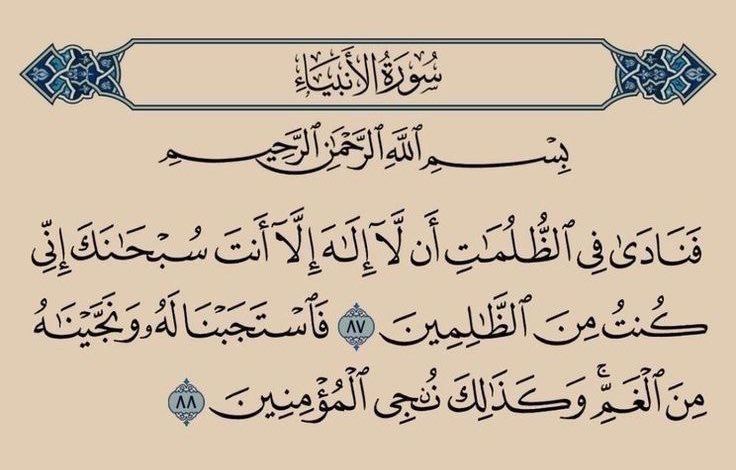 سُورَةُ الأَنبِيَاءِ
بِسْمِ ٱللَّهِ ٱلرَّحْمَٰنِ ٱلرَّحِيمِ
فَنَادَىٰ فِي ٱلظُّلُمَٰتِ أَن لَّآ إِلَٰهَ إِلَّآ أَنتَ سُبْحَٰنَكَ إِنِّي
كُنتُ مِنَ ٱلظَّٰلِمِينَ ٨٧ فَٱسْتَجَبْنَا لَهُۥ وَنَجَّيْنَٰهُ
مِنَ ٱلْغَمِّۚ وَكَذَٰلِكَ نُۨجِي ٱلْمُؤْمِنِينَ ٨٨